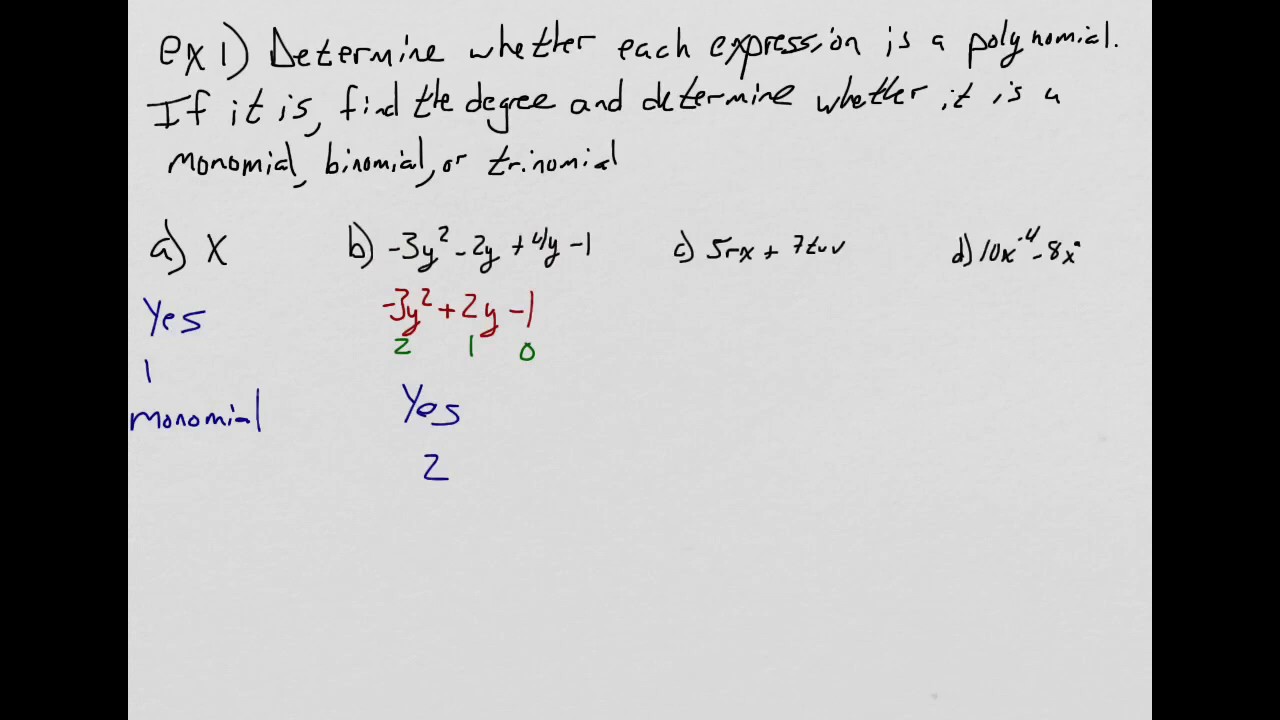 ex 1) Determine whether each expression is a polynomial.
If it is, find the degree and determine whether it is a
monomial, binomial, or trinomial
a) x b) -3y² - 2y + 4y - 1 c) 5rx + 7tuv d) 10x⁻⁴ - 8x
Yes -3y² + 2y - 1
2 1 0
1 Yes
monomial 2